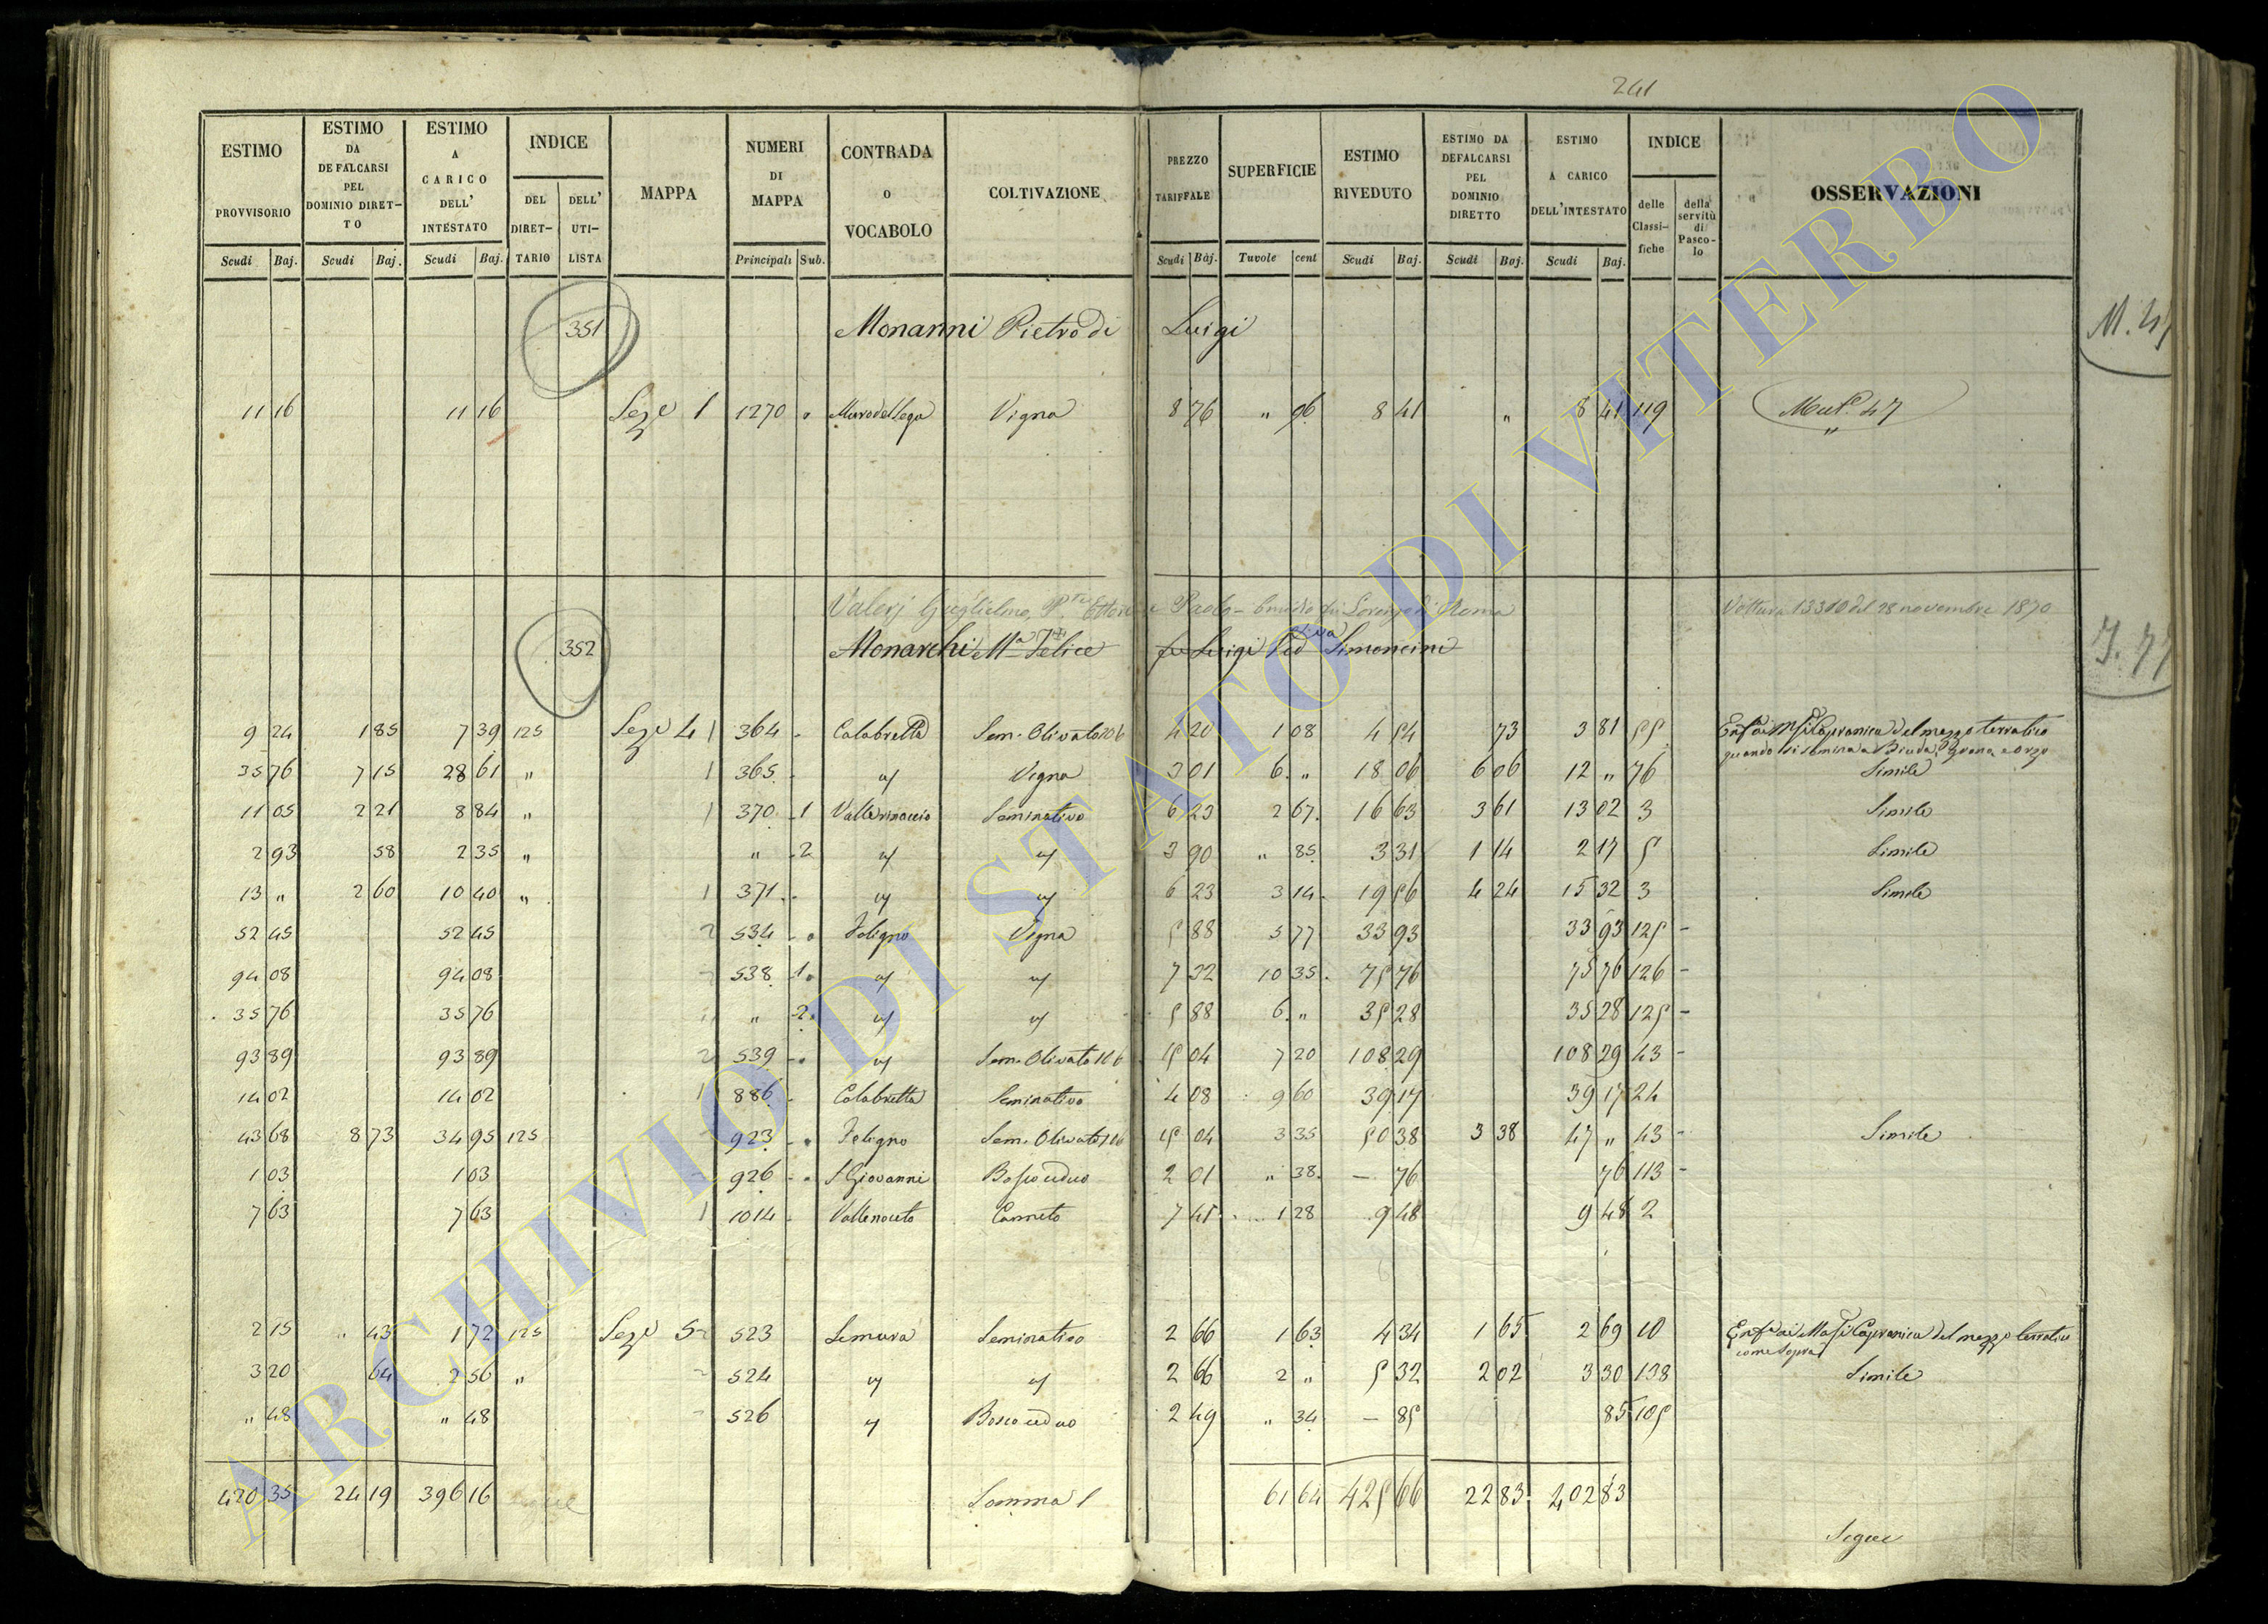 241
ESTIMO PROVVISORIO Scudi Baj.
ESTIMO DA DEFALCARSI PEL DOMINIO DIRETTO Scudi Baj.
ESTIMO A CARICO DELL' INTESTATO Scudi Baj.
INDICE DEL DIRETTARIO DELL' UTILISTA
MAPPA
NUMERI DI MAPPA Principali Sub.
CONTRADA o VOCABOLO
COLTIVAZIONE
PREZZO TARIFFALE Scudi Baj.
SUPERFICIE Tavole cent
ESTIMO RIVEDUTO Scudi Baj.
ESTIMO DA DEFALCARSI PEL DOMINIO DIRETTO Scudi Baj.
ESTIMO A CARICO DELL'INTESTATO Scudi Baj.
INDICE delle Classifiche della servitù di Pascolo
OSSERVAZIONI
351 Monanni Pietro di Luigi
11 16 11 16 Sez.e 1 1270 Muro del Lega Vigna 8 76 " 96 8 41 " 8 41 119 Mut.e 47
Valerj Guglielmo, Ettore e Paolo di Roma Voltura 13310 del 28 novembre 1870
352 Monarchi M.a Felice fu Luigi Ved.va Simoncini
9 24 1 85 7 39 125 Sez.e 4 1 364 Calabretta Sem. Olivato 106 4 20 1 08 4 54 73 3 81 55 Capranica del mezzo terratico
quando si semina a Biada, Grano, e Orzo
35 76 7 15 28 61 " 1 365 " Vigna 3 01 6 " 18 06 6 06 12 " 76 Simile
11 05 2 21 8 84 " 1 370 1 Vallerinaccio Seminativo 6 23 2 67 16 63 3 61 13 02 3 Simile
2 93 58 2 35 " " 2 " " 3 90 " 85 3 31 1 14 2 17 5 Simile
13 " 2 60 10 40 " 1 371 " " 6 23 3 14 19 56 4 24 15 32 3 Simile
52 45 52 45 2 534 Foligno Vigna 5 88 5 77 33 93 33 93 125
94 08 94 08 538 1 " " 7 32 10 35 75 76 75 76 126
35 76 35 76 " 2 " " 5 88 6 " 35 28 35 28 125
93 89 93 89 2 539 " Sem. Olivato 106 15 04 7 20 108 29 108 29 43
14 02 14 02 1 886 Calabretta Seminativo 4 08 9 60 39 17 39 17 24
43 68 8 73 34 95 125 923 Foligno Sem. Olivato 106 15 04 3 35 50 38 3 38 47 " 43 Simile
1 03 1 03 926 S. Giovanni Bosco ceduo 2 01 " 38 — 76 76 113
7 63 7 63 1 1014 Vallenoceto Canneto 7 41 1 28 9 48 9 48 2
2 15 " 43 1 72 125 Sez.e 5 523 Semura Seminativo 2 66 1 63 4 34 1 65 2 69 10 Capranica del mezzo terratico
come sopra
3 20 64 2 56 " 524 " " 2 66 2 " 5 32 2 02 3 30 138 Simile
" 48 " 48 526 " Bosco ceduo 2 49 " 34 — 85 85 105
420 35 24 19 396 16 Segue Somma 1 61 64 425 66 22 83 402 83
Segue
ARCHIVIO DI STATO DI VITERBO